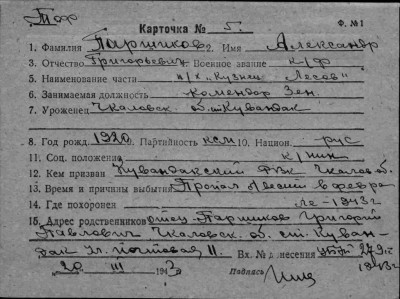 Тоф
Карточка № 5. Ф. №1
1. Фамилия Паршиков 2. Имя Александр
3. Отчество Григорьевич Военное звание к/ф
5. Наименование части п/х "Кузнец Лесов"
6. Занимаемая должность комендор Зен.
7. Уроженец Чкаловск. обл. ст Кувандак
8. Год рожд 1920. Партийность ксм 10. Национ. рус
11. Соц. положение
12. Кем призван Кувандакский РВК Чкалов. об.
13. Время и причины выбытия Пропал б/вести в февра
14. Где похоронен ле - 1943 г
15. Адрес родственников отец Паршиков Григорий
Павлович Чкаловск. об. ст. Куван-
дак ул. Почтовая 11. Вх. № донесения
20 III 1943 Подпись 1943г